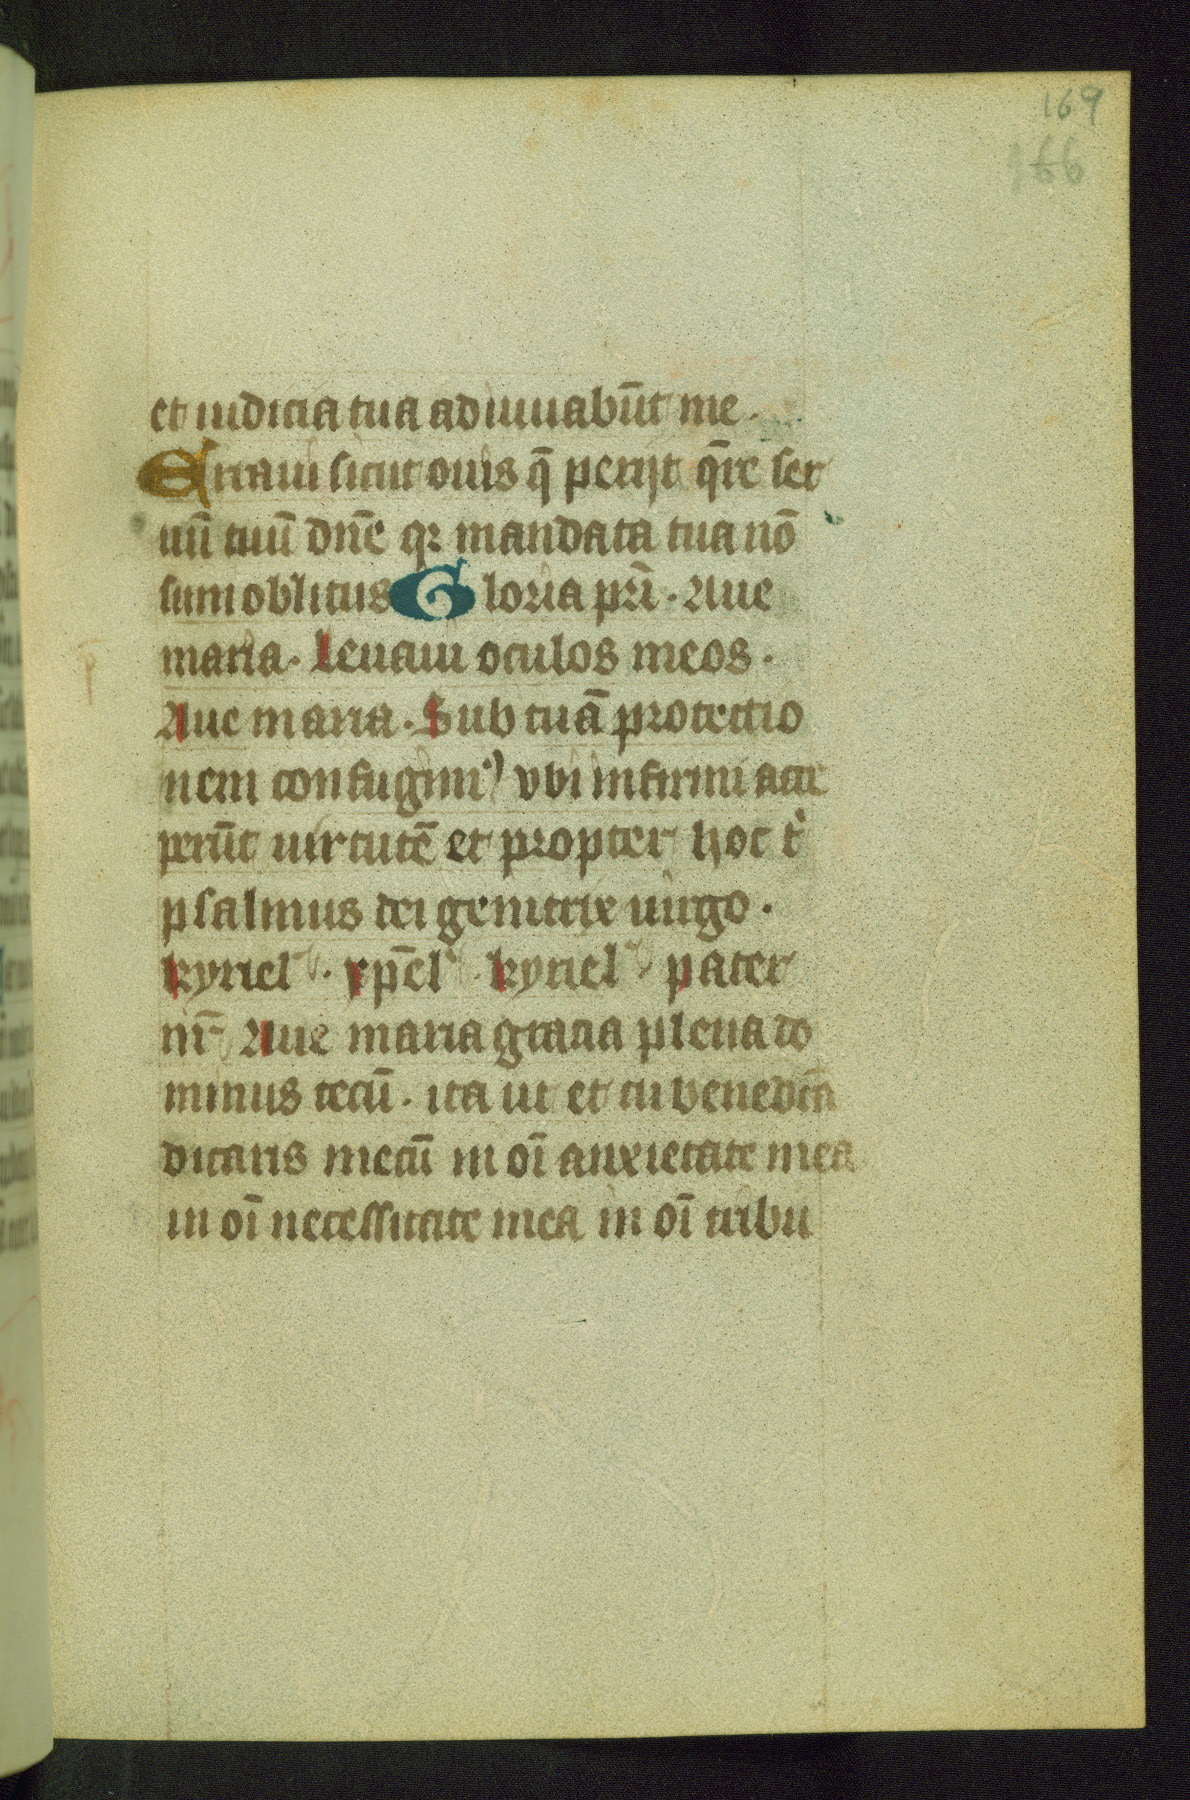 169
166
et iudicia tua adiuuabūt me.
Erraui sicut ouis q̄ perijt q̄re ser
uū tuū dn̄e qꝛ mandata tua nō
sum oblitus Gloria pr̄i. Aue
maria. Leuaui oculos meos.
Aue maria. Sub tuā protectio
nem confugimꝰ vbi infirmi acce
perūt uirtutē et propter hoc t̾
psalmus dei genitrix uirgo.
kyriel̾. xp̄el̾. kyriel̾. pater
nr̄ Aue maria gracia plena do
minus tecū. ita ut et tu benedicta
dicaris mecū in oī anxietate mea
in oī necessitate mea in oī tribu